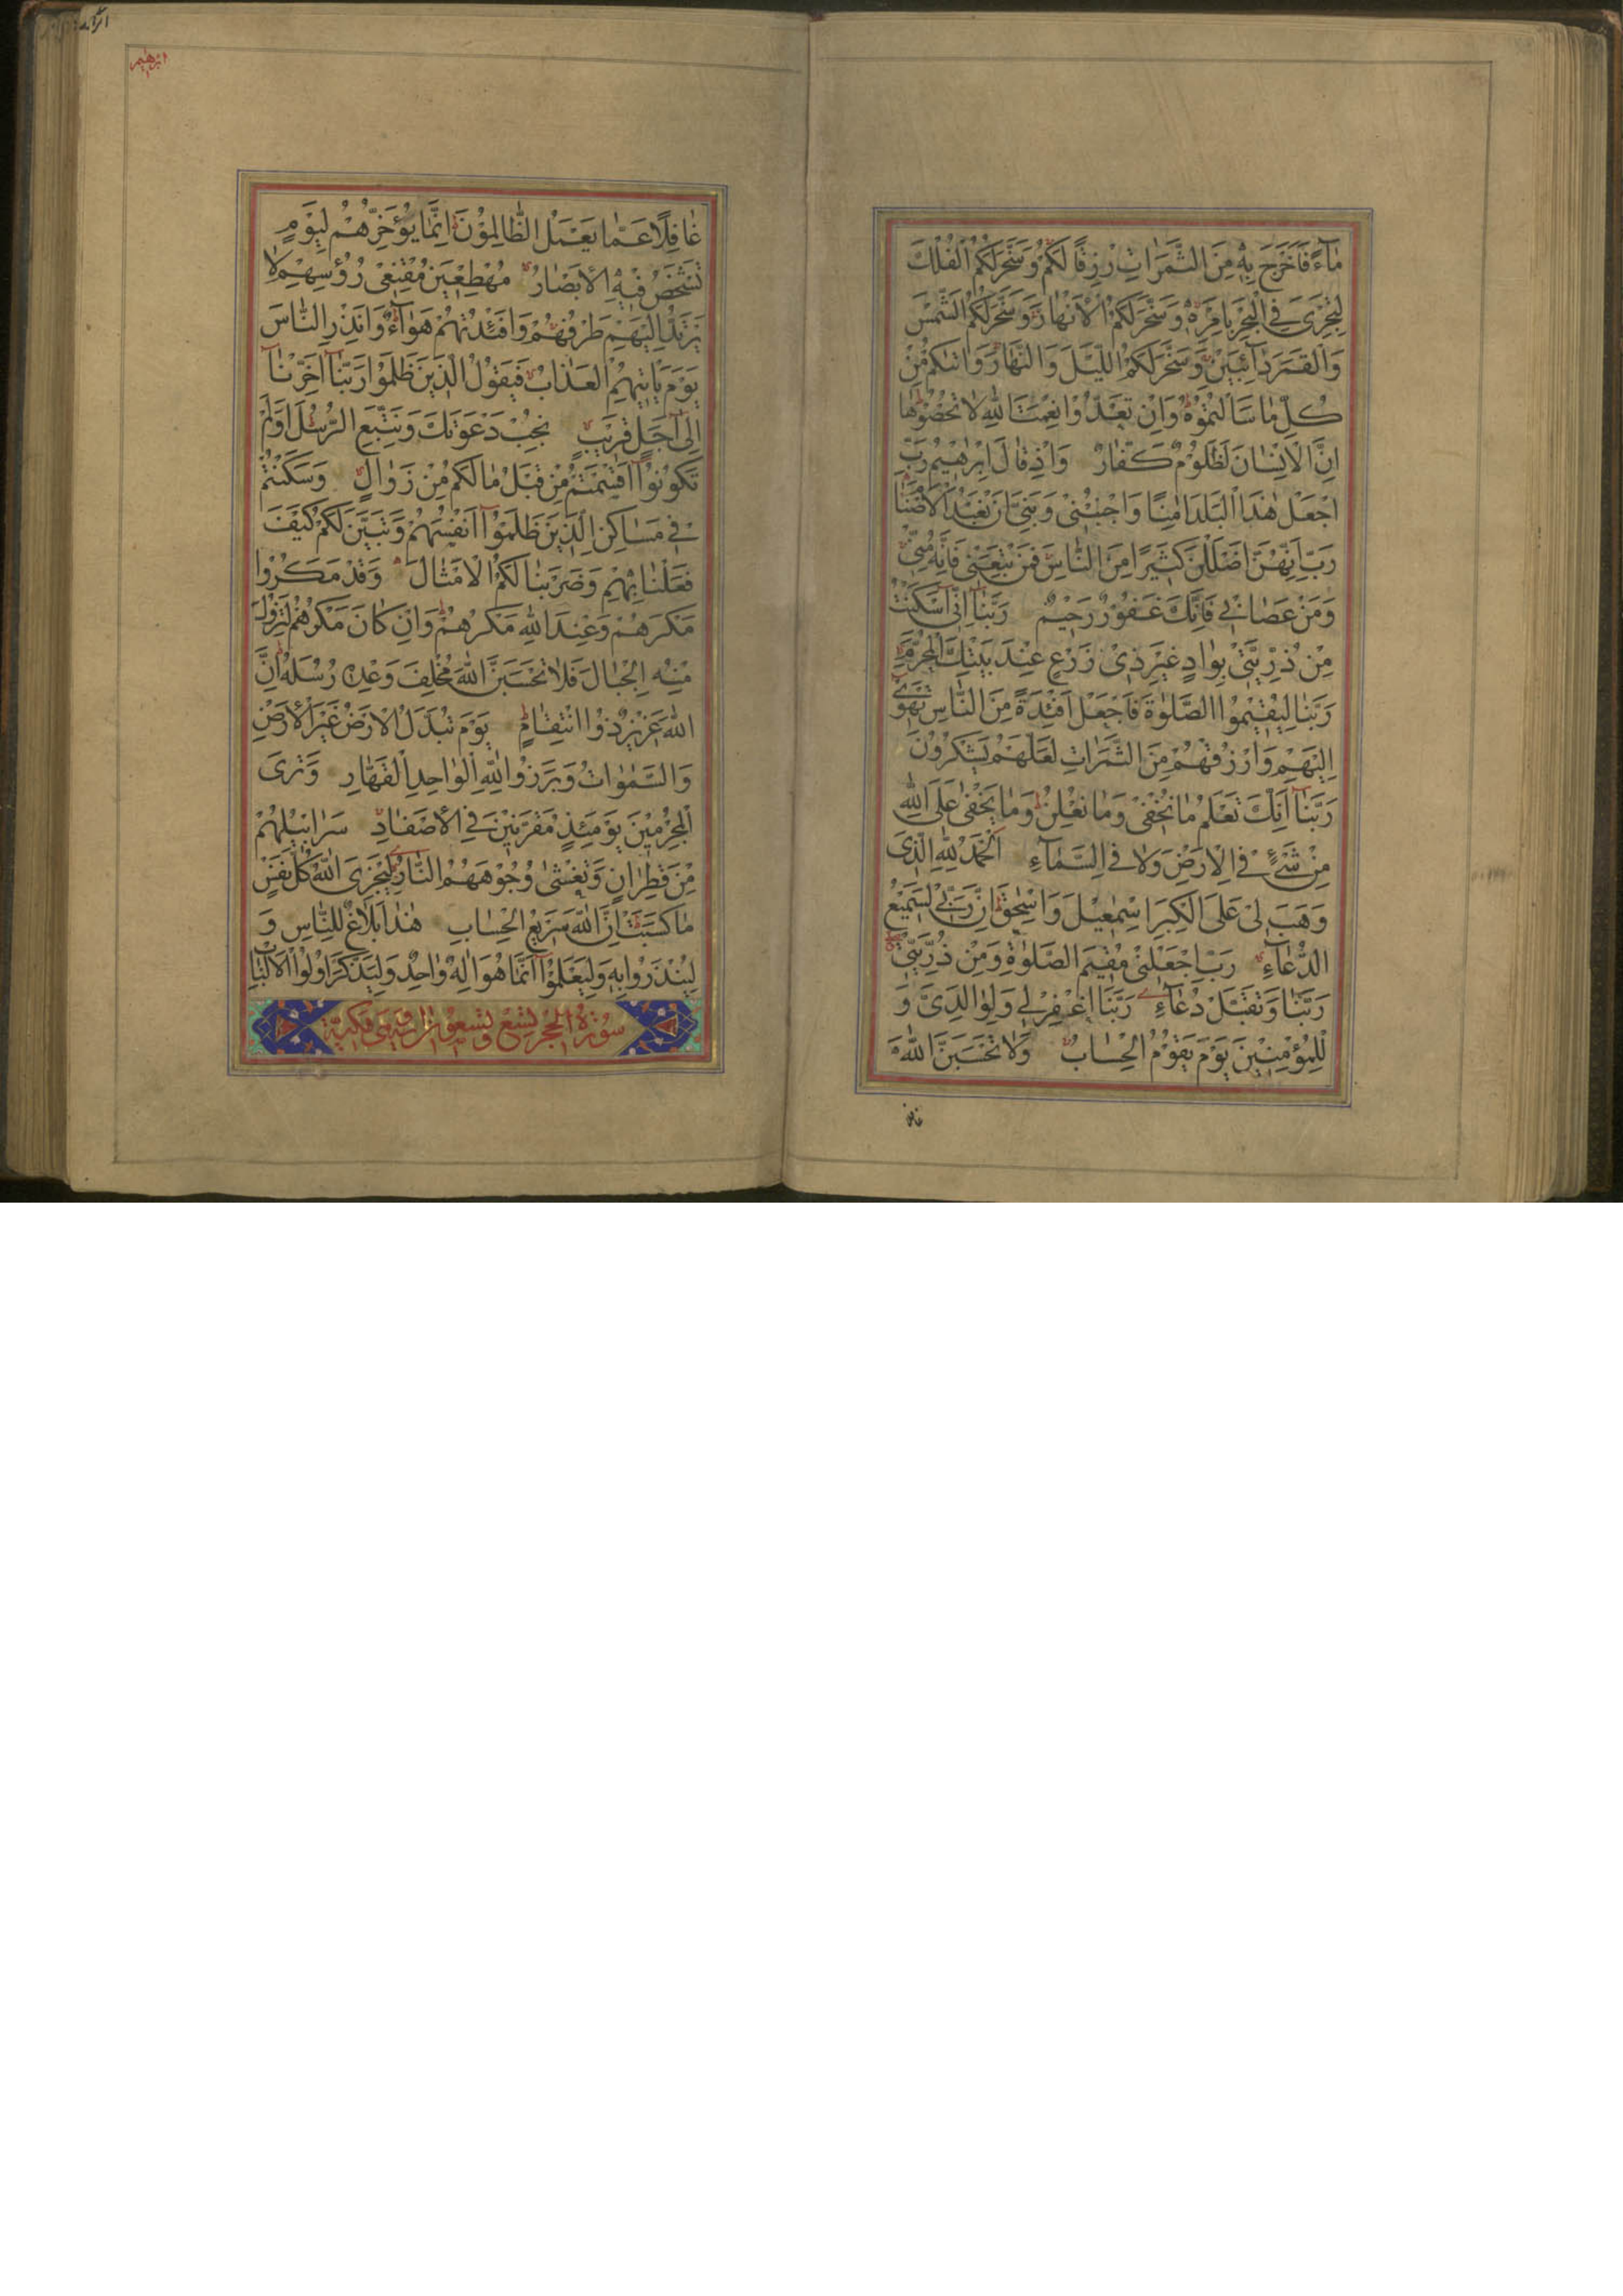 مَآءً فَاَخْرَجَ بِهٖ مِنَ الثَّمَرٰاتِ رِزْقًا لَكُمْ وَسَخَّرَ لَكُمُ الْفُلْكَ
لِتَجْرِىَ فِى الْبَحْرِ بِاَمْرِهٖ وَسَخَّرَ لَكُمُ الْاَنْهٰارَ وَسَخَّرَ لَكُمُ الشَّمْسَ
وَالْقَمَرَ دٰآئِبَيْنِ وَسَخَّرَ لَكُمُ الَّيْلَ وَالنَّهٰارَ وَاٰتٰيكُمْ مِنْ
كُلِّ مٰا سَاَلْتُمُوْهُ وَاِنْ تَعُدُّوْا نِعْمَتَ اللّٰهِ لٰا تُحْصُوْهٰا
اِنَّ الْاِنْسٰانَ لَظَلُوْمٌ كَفّٰارٌ وَاِذْ قٰالَ اِبْرٰهِيْمُ رَبِّ
اجْعَلْ هٰذَا الْبَلَدَ اٰمِنًا وَاجْنُبْنِىْ وَبَنِىَّ اَنْ نَعْبُدَ الْاَصْنٰامَ
رَبِّ اِنَّهُنَّ اَضْلَلْنَ كَثِيْرًا مِنَ النّٰاسِ فَمَنْ تَبِعَنِىْ فَاِنَّهُ مِنِّىْ
وَمَنْ عَصٰانِىْ فَاِنَّكَ غَفُوْرٌ رَحِيْمٌ رَبَّنٰا اِنِّىْ اَسْكَنْتُ
مِنْ ذُرِّيَّتِىْ بِوٰادٍ غَيْرِ ذِىْ زَرْعٍ عِنْدَ بَيْتِكَ الْمُحَرَّمِ
رَبَّنٰا لِيُقِيْمُوا الصَّلٰوةَ فَاجْعَلْ اَفْئِدَةً مِنَ النّٰاسِ تَهْوِىْ
اِلَيْهِمْ وَارْزُقْهُمْ مِنَ الثَّمَرٰاتِ لَعَلَّهُمْ يَشْكُرُوْنَ
رَبَّنٰآ اِنَّكَ تَعْلَمُ مٰا نُخْفِىْ وَمٰا نُعْلِنُ وَمٰا يَخْفٰى عَلَى اللّٰهِ
مِنْ شَىْءٍ فِى الْاَرْضِ وَلٰا فِى السَّمٰآءِ اَلْحَمْدُ لِلّٰهِ الَّذِىْ
وَهَبَ لِىْ عَلَى الْكِبَرِ اِسْمٰعِيْلَ وَاِسْحٰقَ اِنَّ رَبِّىْ لَسَمِيْعُ
الدُّعٰآءِ رَبِّ اجْعَلْنِىْ مُقِيْمَ الصَّلٰوةِ وَمِنْ ذُرِّيَّتِىْ
رَبَّنٰا وَتَقَبَّلْ دُعٰآءِ رَبَّنَا اغْفِرْ لِىْ وَلِوٰالِدَىَّ وَ
لِلْمُؤْمِنِيْنَ يَوْمَ يَقُوْمُ الْحِسٰابُ وَلٰا تَحْسَبَنَّ اللّٰهَ
ابرهيم
غٰافِلًا عَمّٰا يَعْمَلُ الظّٰالِمُوْنَ اِنَّمٰا يُؤَخِّرُهُمْ لِيَوْمٍ
تَشْخَصُ فِيْهِ الْاَبْصٰارُ مُهْطِعِيْنَ مُقْنِعِىْ رُؤُسِهِمْ لٰا
يَرْتَدُّ اِلَيْهِمْ طَرْفُهُمْ وَاَفْئِدَتُهُمْ هَوٰآءٌ وَاَنْذِرِ النّٰاسَ
يَوْمَ يَاْتِيْهِمُ الْعَذٰابُ فَيَقُوْلُ الَّذِيْنَ ظَلَمُوْا رَبَّنٰآ اَخِّرْنٰآ
اِلٰى اَجَلٍ قَرِيْبٍ نُجِبْ دَعْوَتَكَ وَنَتَّبِعِ الرُّسُلَ اَوَلَمْ
تَكُوْنُوْا اَقْسَمْتُمْ مِنْ قَبْلُ مٰا لَكُمْ مِنْ زَوٰالٍ وَسَكَنْتُمْ
فِىْ مَسٰاكِنِ الَّذِيْنَ ظَلَمُوْا اَنْفُسَهُمْ وَتَبَيَّنَ لَكُمْ كَيْفَ
فَعَلْنٰا بِهِمْ وَضَرَبْنٰا لَكُمُ الْاَمْثٰالَ وَقَدْ مَكَرُوْا
مَكْرَهُمْ وَعِنْدَ اللّٰهِ مَكْرُهُمْ وَاِنْ كٰانَ مَكْرُهُمْ لِتَزُوْلَ
مِنْهُ الْجِبٰالُ فَلٰا تَحْسَبَنَّ اللّٰهَ مُخْلِفَ وَعْدِهٖ رُسُلَهُ اِنَّ
اللّٰهَ عَزِيْزٌ ذُو انْتِقٰامٍ يَوْمَ تُبَدَّلُ الْاَرْضُ غَيْرَ الْاَرْضِ
وَالسَّمٰوٰاتُ وَبَرَزُوْا لِلّٰهِ الْوٰاحِدِ الْقَهّٰارِ وَتَرَى
الْمُجْرِمِيْنَ يَوْمَئِذٍ مُقَرَّنِيْنَ فِى الْاَصْفٰادِ سَرٰابِيْلُهُمْ
مِنْ قَطِرٰانٍ وَتَغْشٰى وُجُوْهَهُمُ النّٰارُ لِيَجْزِىَ اللّٰهُ كُلَّ نَفْسٍ
مٰا كَسَبَتْ اِنَّ اللّٰهَ سَرِيْعُ الْحِسٰابِ هٰذٰا بَلٰاغٌ لِلنّٰاسِ وَ
لِيُنْذَرُوْا بِهٖ وَلِيَعْلَمُوْآ اَنَّمٰا هُوَ اِلٰهٌ وٰاحِدٌ وَلِيَذَّكَّرَ اُولُوا الْاَلْبٰابِ
سُوْرَةُ الْحِجْرِ تِسْعٌ وَتِسْعُوْنَ اٰيَةً وَهِىَ مَكِّيَّةٌ